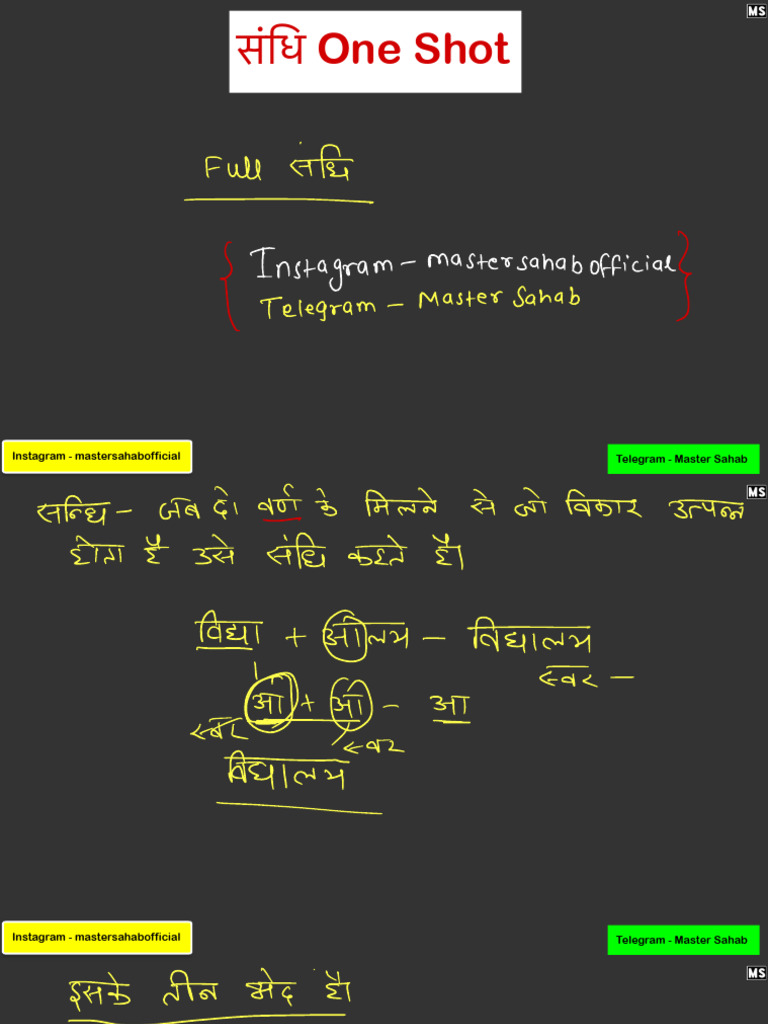 MS
संधि One Shot
Full संधि
Instagram - mastersahabofficial
Telegram - Master Sahab
Instagram - mastersahabofficial
Telegram - Master Sahab
MS
सन्धि - जब दो वर्ण के मिलने से जो विकार उत्पन्न
होता है उसे संधि कहते है।
विद्या + आलय - विद्यालय
स्वर -
आ + आ - आ
स्वर
स्वर
विद्यालय
Instagram - mastersahabofficial
Telegram - Master Sahab
MS
इसके तीन भेद है।